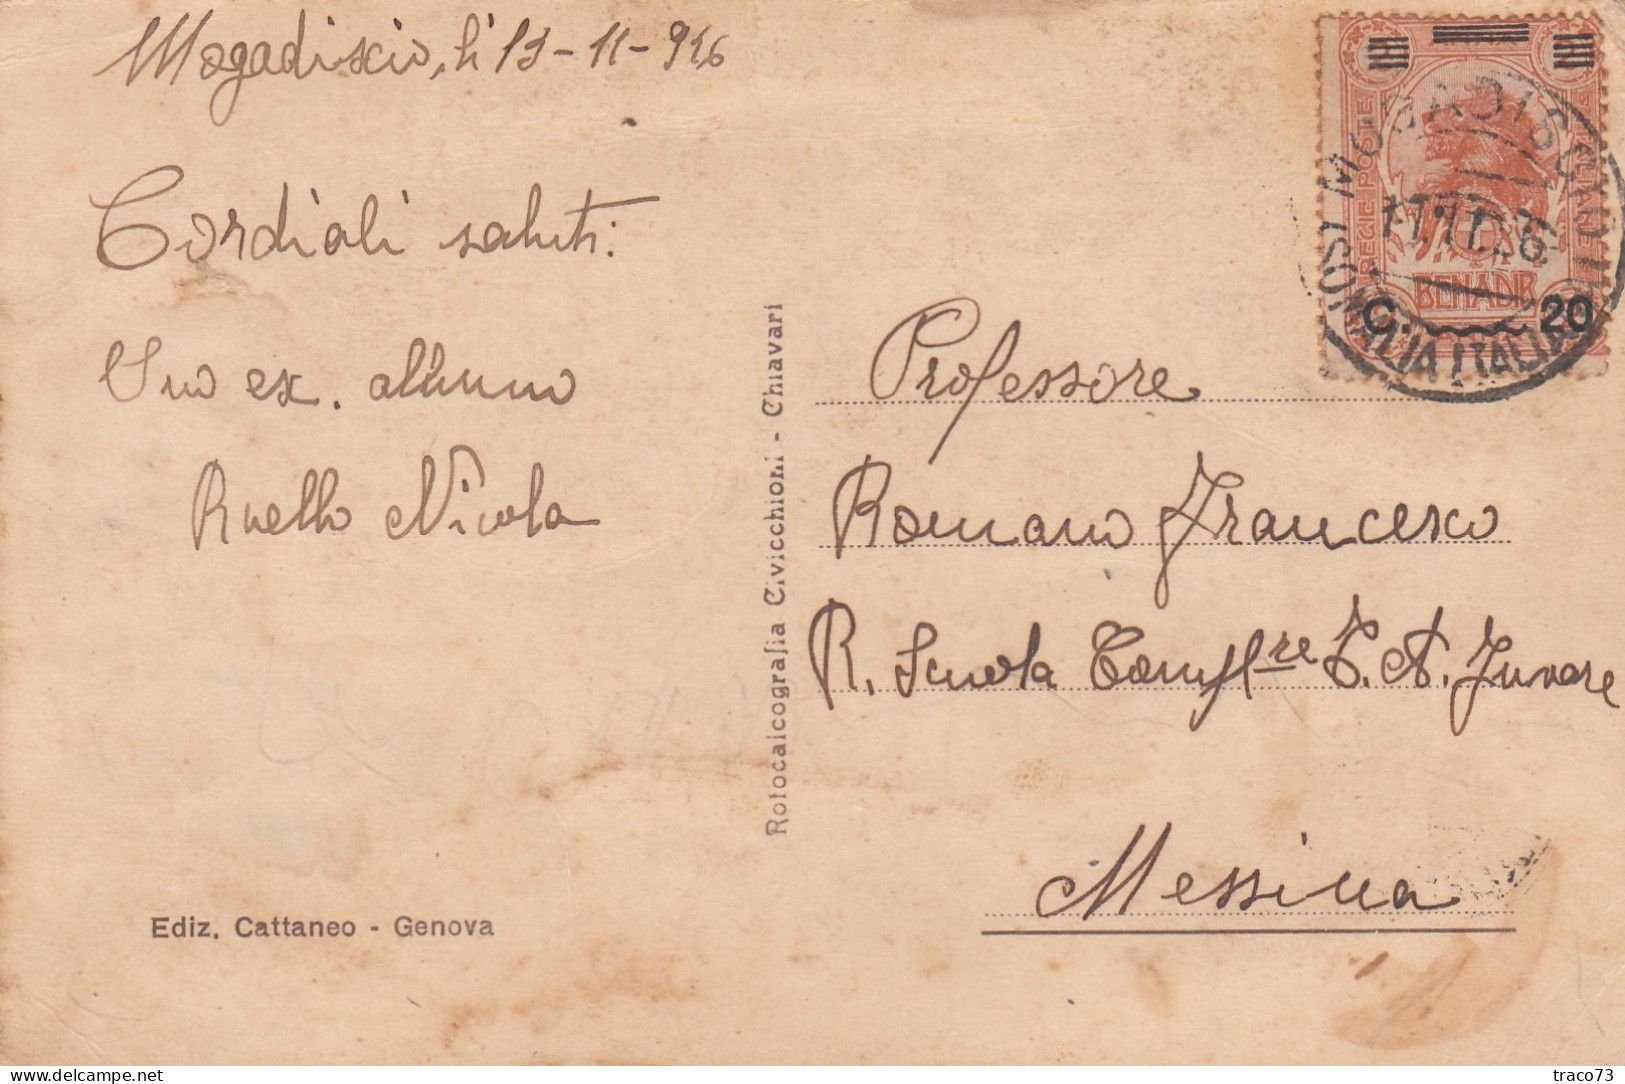 Mogadiscio, li 13-11-926
Cordiali saluti:
Suo ex. alunno
Ruello Nicola
Ediz. Cattaneo - Genova
Rotocalcografia Civicchioni - Chiavari
REGIE POSTE
BENADIR
C. 20
MOGADISCIO
17.11.26
SOMALIA ITALIANA
Professore
Romano Francesco
R. Scuola Compl.re
Messina
traco73